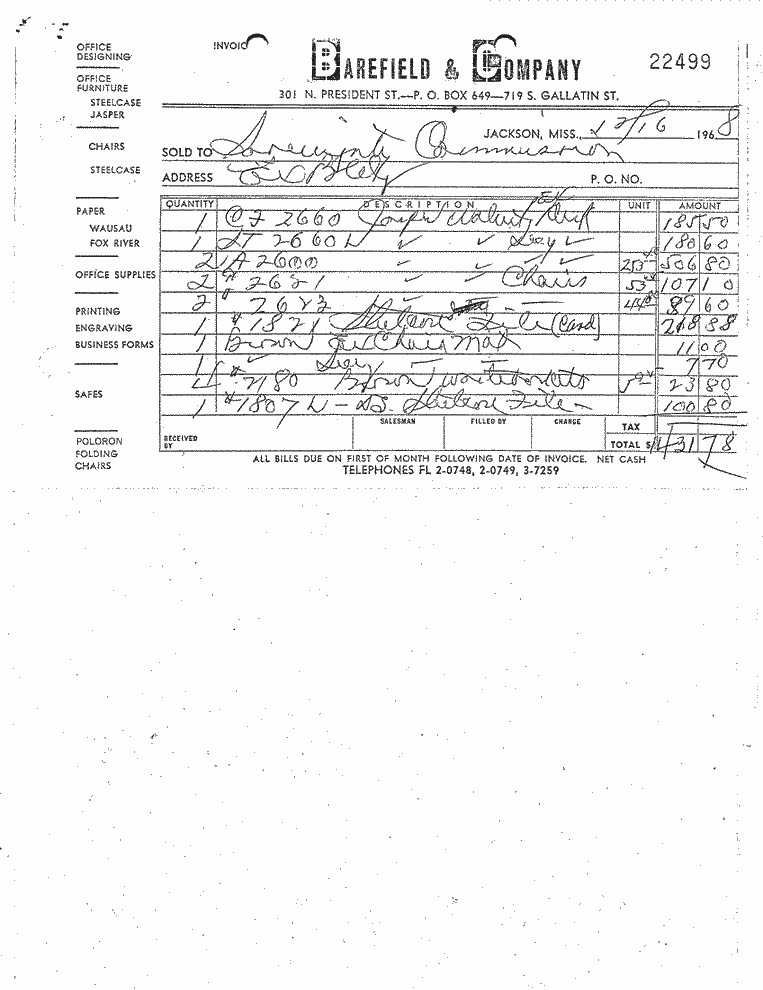 INVOICE
BAREFIELD & COMPANY
22499
301 N. PRESIDENT ST.—P. O. BOX 649—719 S. GALLATIN ST.
JACKSON, MISS., 12/16 1968
SOLD TO Sovereignty Commission
ADDRESS
P. O. NO.
OFFICE
DESIGNING
OFFICE
FURNITURE
STEELCASE
JASPER
CHAIRS
STEELCASE
PAPER
WAUSAU
FOX RIVER
OFFICE SUPPLIES
PRINTING
ENGRAVING
BUSINESS FORMS
SAFES
POLORON
FOLDING
CHAIRS
QUANTITY DESCRIPTION UNIT AMOUNT
1 2660 Walnut 185 50
1 2660 L Secy 180 60
2 2600 253 40 506 80
2 # 2621 Chairs 53 107 10
2 # 2623 44 80 89 60
1 # 1321 File (Card) 218 88
1 Brown Chair Mat 11 00
1 Secy 7 70
4 # 2180 Brown 23 80
1 # 1807 L - File - 100 80
SALESMAN FILLED BY CHARGE
RECEIVED
BY
TAX
TOTAL $ 1431 78
ALL BILLS DUE ON FIRST OF MONTH FOLLOWING DATE OF INVOICE. NET CASH
TELEPHONES FL 2-0748, 2-0749, 3-7259